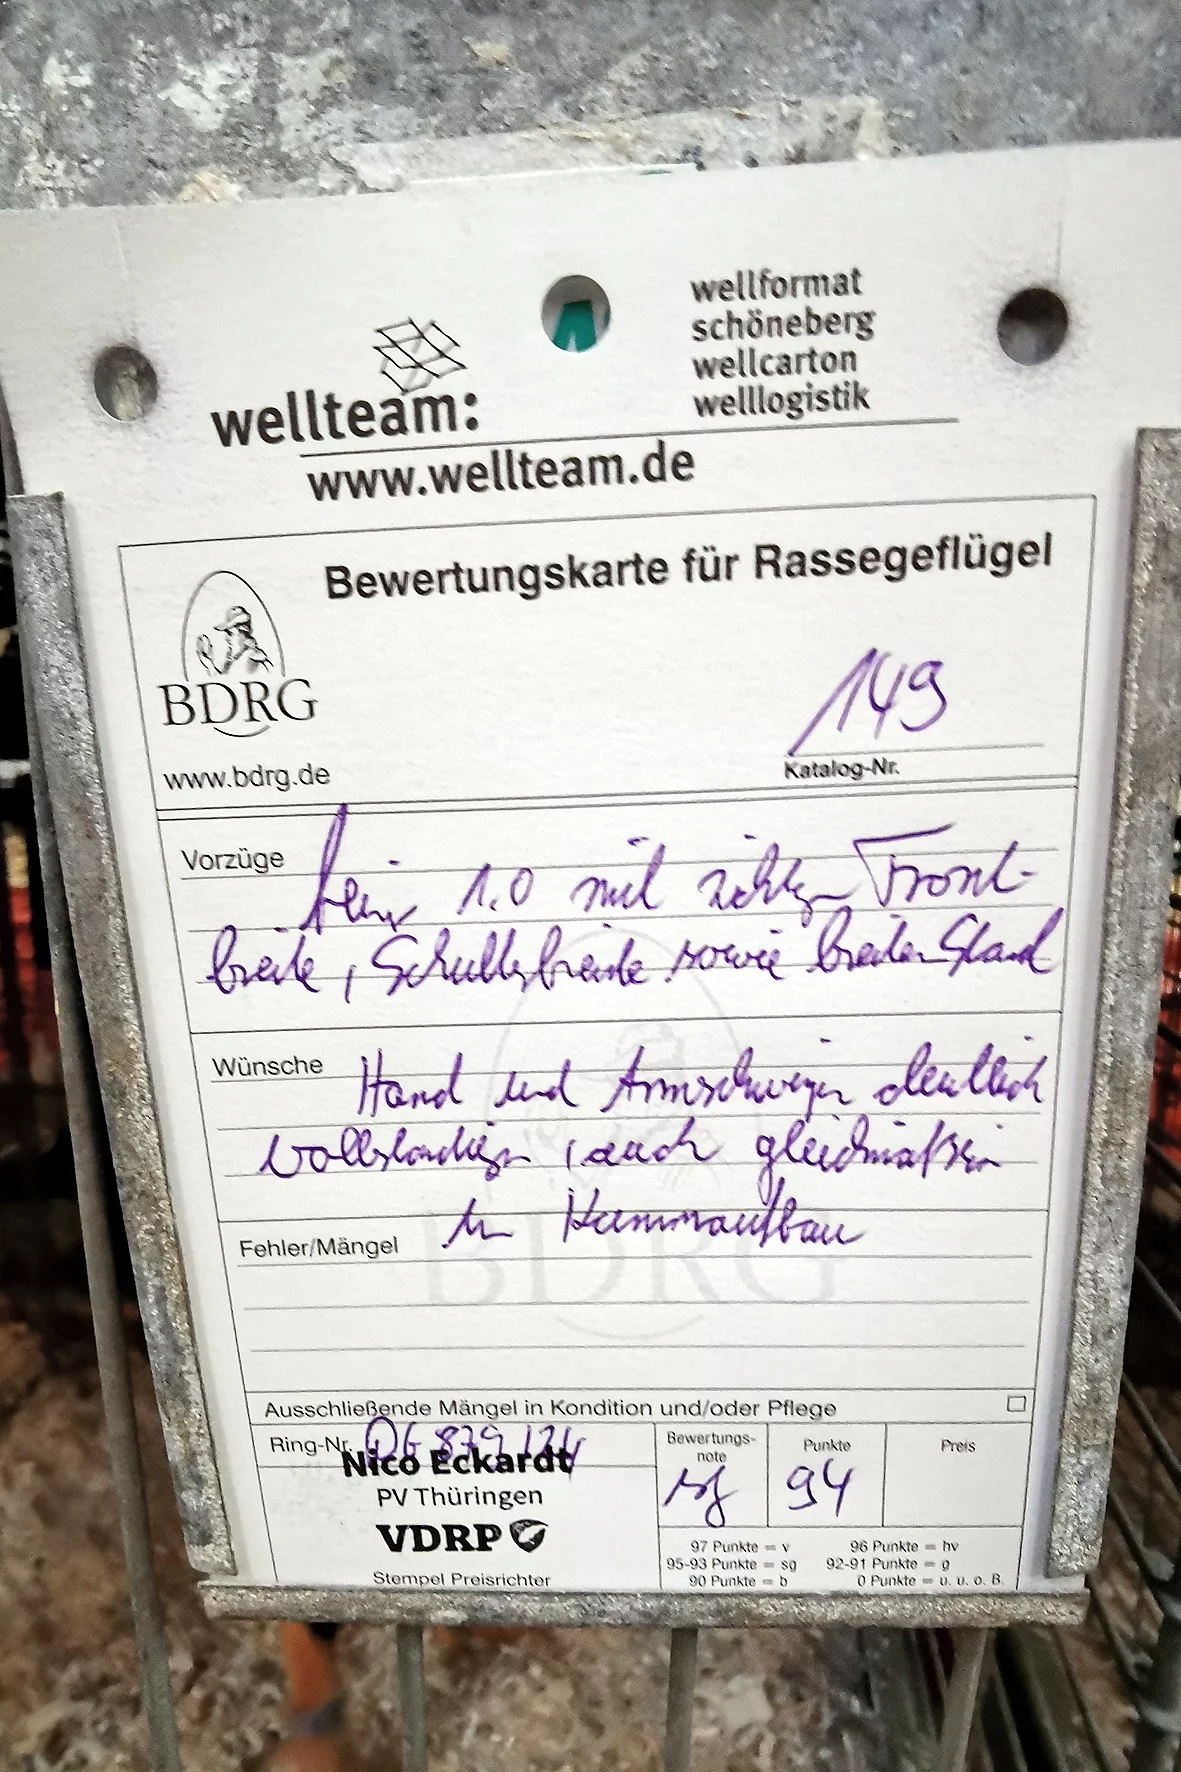 wellteam:
www.wellteam.de
wellformat
schöneberg
wellcarton
welllogistik
Bewertungskarte für Rassegeflügel
BDRG
www.bdrg.de
149
Katalog-Nr.
Vorzüge
1.0 mit Front-
breite, Schulterbreite sowie breiten Stand
Wünsche
Hand und Armschwingen deutlich
vollständiger, auch gleichmäßiger
im Kammaufbau
Fehler/Mängel
BDRG
Ausschließende Mängel in Kondition und/oder Pflege
Ring-Nr.
Nico Eckardt
PV Thüringen
VDRP
Stempel Preisrichter
Bewertungs-
note
sg
Punkte
94
Preis
97 Punkte = v 96 Punkte = hv
95-93 Punkte = sg 92-91 Punkte = g
90 Punkte = b 0 Punkte = u. u. o. B.